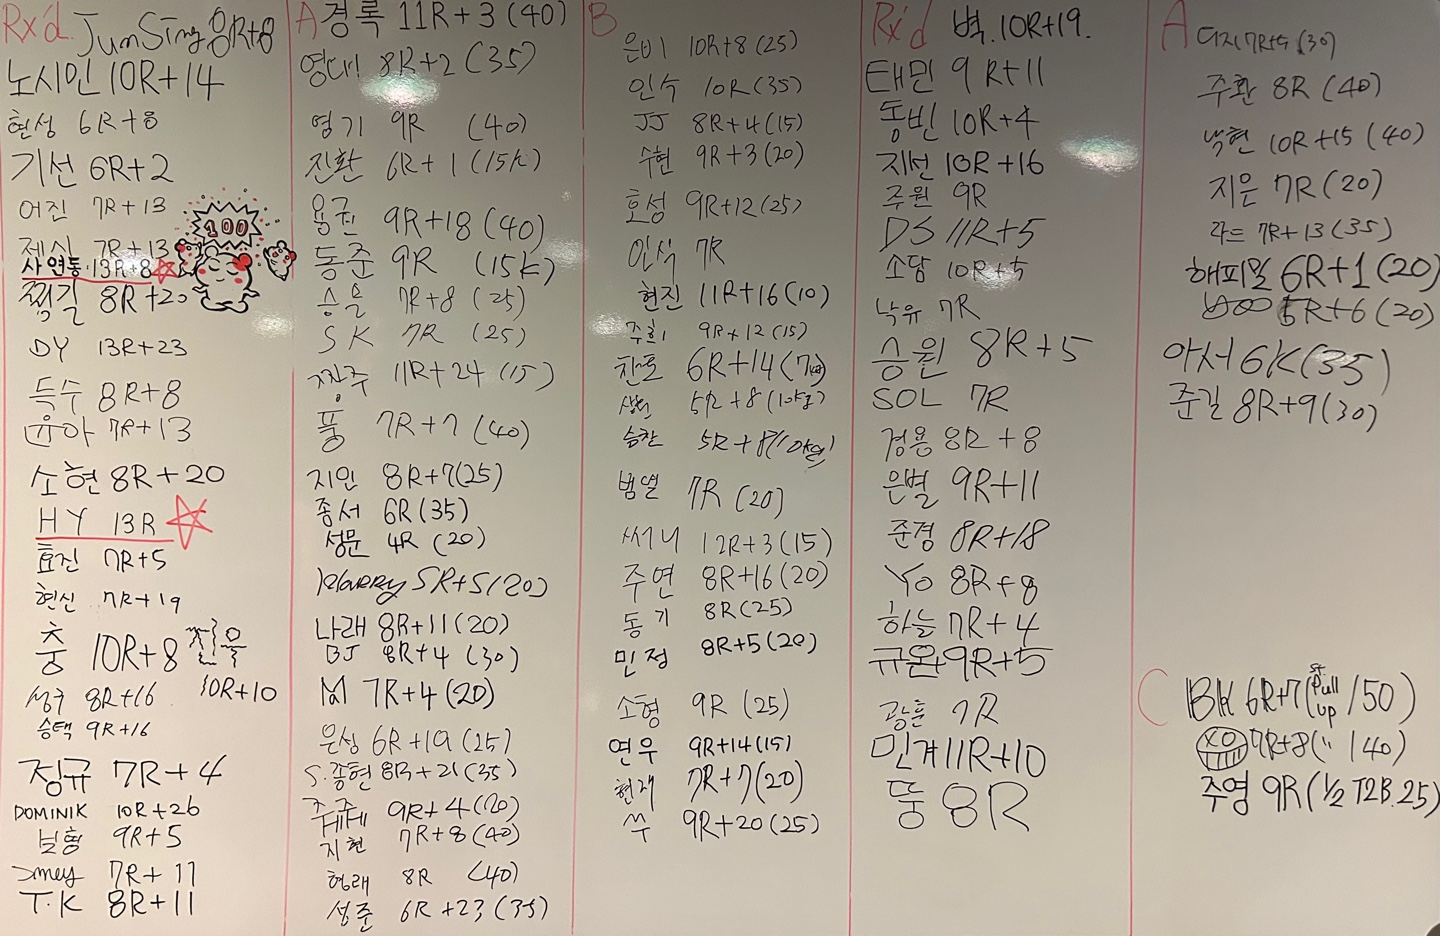 Rx'd. JunSing 8R+8
노시인 10R+14
현성 6R+8
기선 6R+2
어진 7R+13
제식 7R+13
100
사연동 13R+8
찍길 8R+20
DY 13R+23
득수 8R+8
윤아 7R+13
소현 8R+20
HY 13R
효진 7R+5
현신 7R+19
충 10R+8
10R+10
성구 8R+16
승택 9R+16
정규 7R+4
DOMINIK 10R+26
보황 9R+5
7R+11
T.K 8R+11
A 경록 11R+3 (40)
영대 8R+2 (35)
영기 9R (40)
진환 6R+1 (15k)
용권 9R+18 (40)
동준 9R (15k)
승율 7R+8 (25)
SK 7R (25)
11R+24 (15)
풍 7R+7 (40)
지인 8R+7(25)
종서 6R(35)
성문 4R (20)
5R+5(20)
나래 8R+11(20)
BJ 8R+4 (30)
M 7R+4(20)
은상 6R+19(25)
S.종현 8R+21(35)
9R+4(20)
지현 7R+8(40)
형래 8R (40)
성준 6R+23(35)
B
은비 10R+8 (25)
인수 10R(35)
JJ 8R+4(15)
수현 9R+3(20)
호성 9R+12(25)
인식 7R
현진 11R+16(10)
주희 9R+12(15)
찬호 6R+14
5R+8
승찬 5R+8
범열 7R (20)
써니 12R+3(15)
주연 8R+16(20)
동기 8R(25)
민정 8R+5(20)
소형 9R (25)
연우 9R+14(15)
현재 7R+7(20)
쑤 9R+20(25)
Rx'd 벽.10R+19.
태민 9R+11
동빈 10R+4
지선 10R+16
주원 9R
DS 11R+5
소담 10R+5
낙유 7R
승원 8R+5
SOL 7R
경용 8R+8
은별 9R+11
준경 8R+18
Yo 8R+8
하늘 7R+4
규온 9R+5
광훈 7R
민계 11R+10
뚱 8R
A 디지 7R+4 (30)
주환 8R (40)
낙현 10R+15 (40)
지은 7R(20)
7R+13(35)
해피밀 6R+1(20)
5R+6(20)
아서 6R(35)
준길 8R+9(30)
C BK 6R+7( pull up /50)
XO 7R+8(" /40)
주영 9R(1/2 T2B.25)